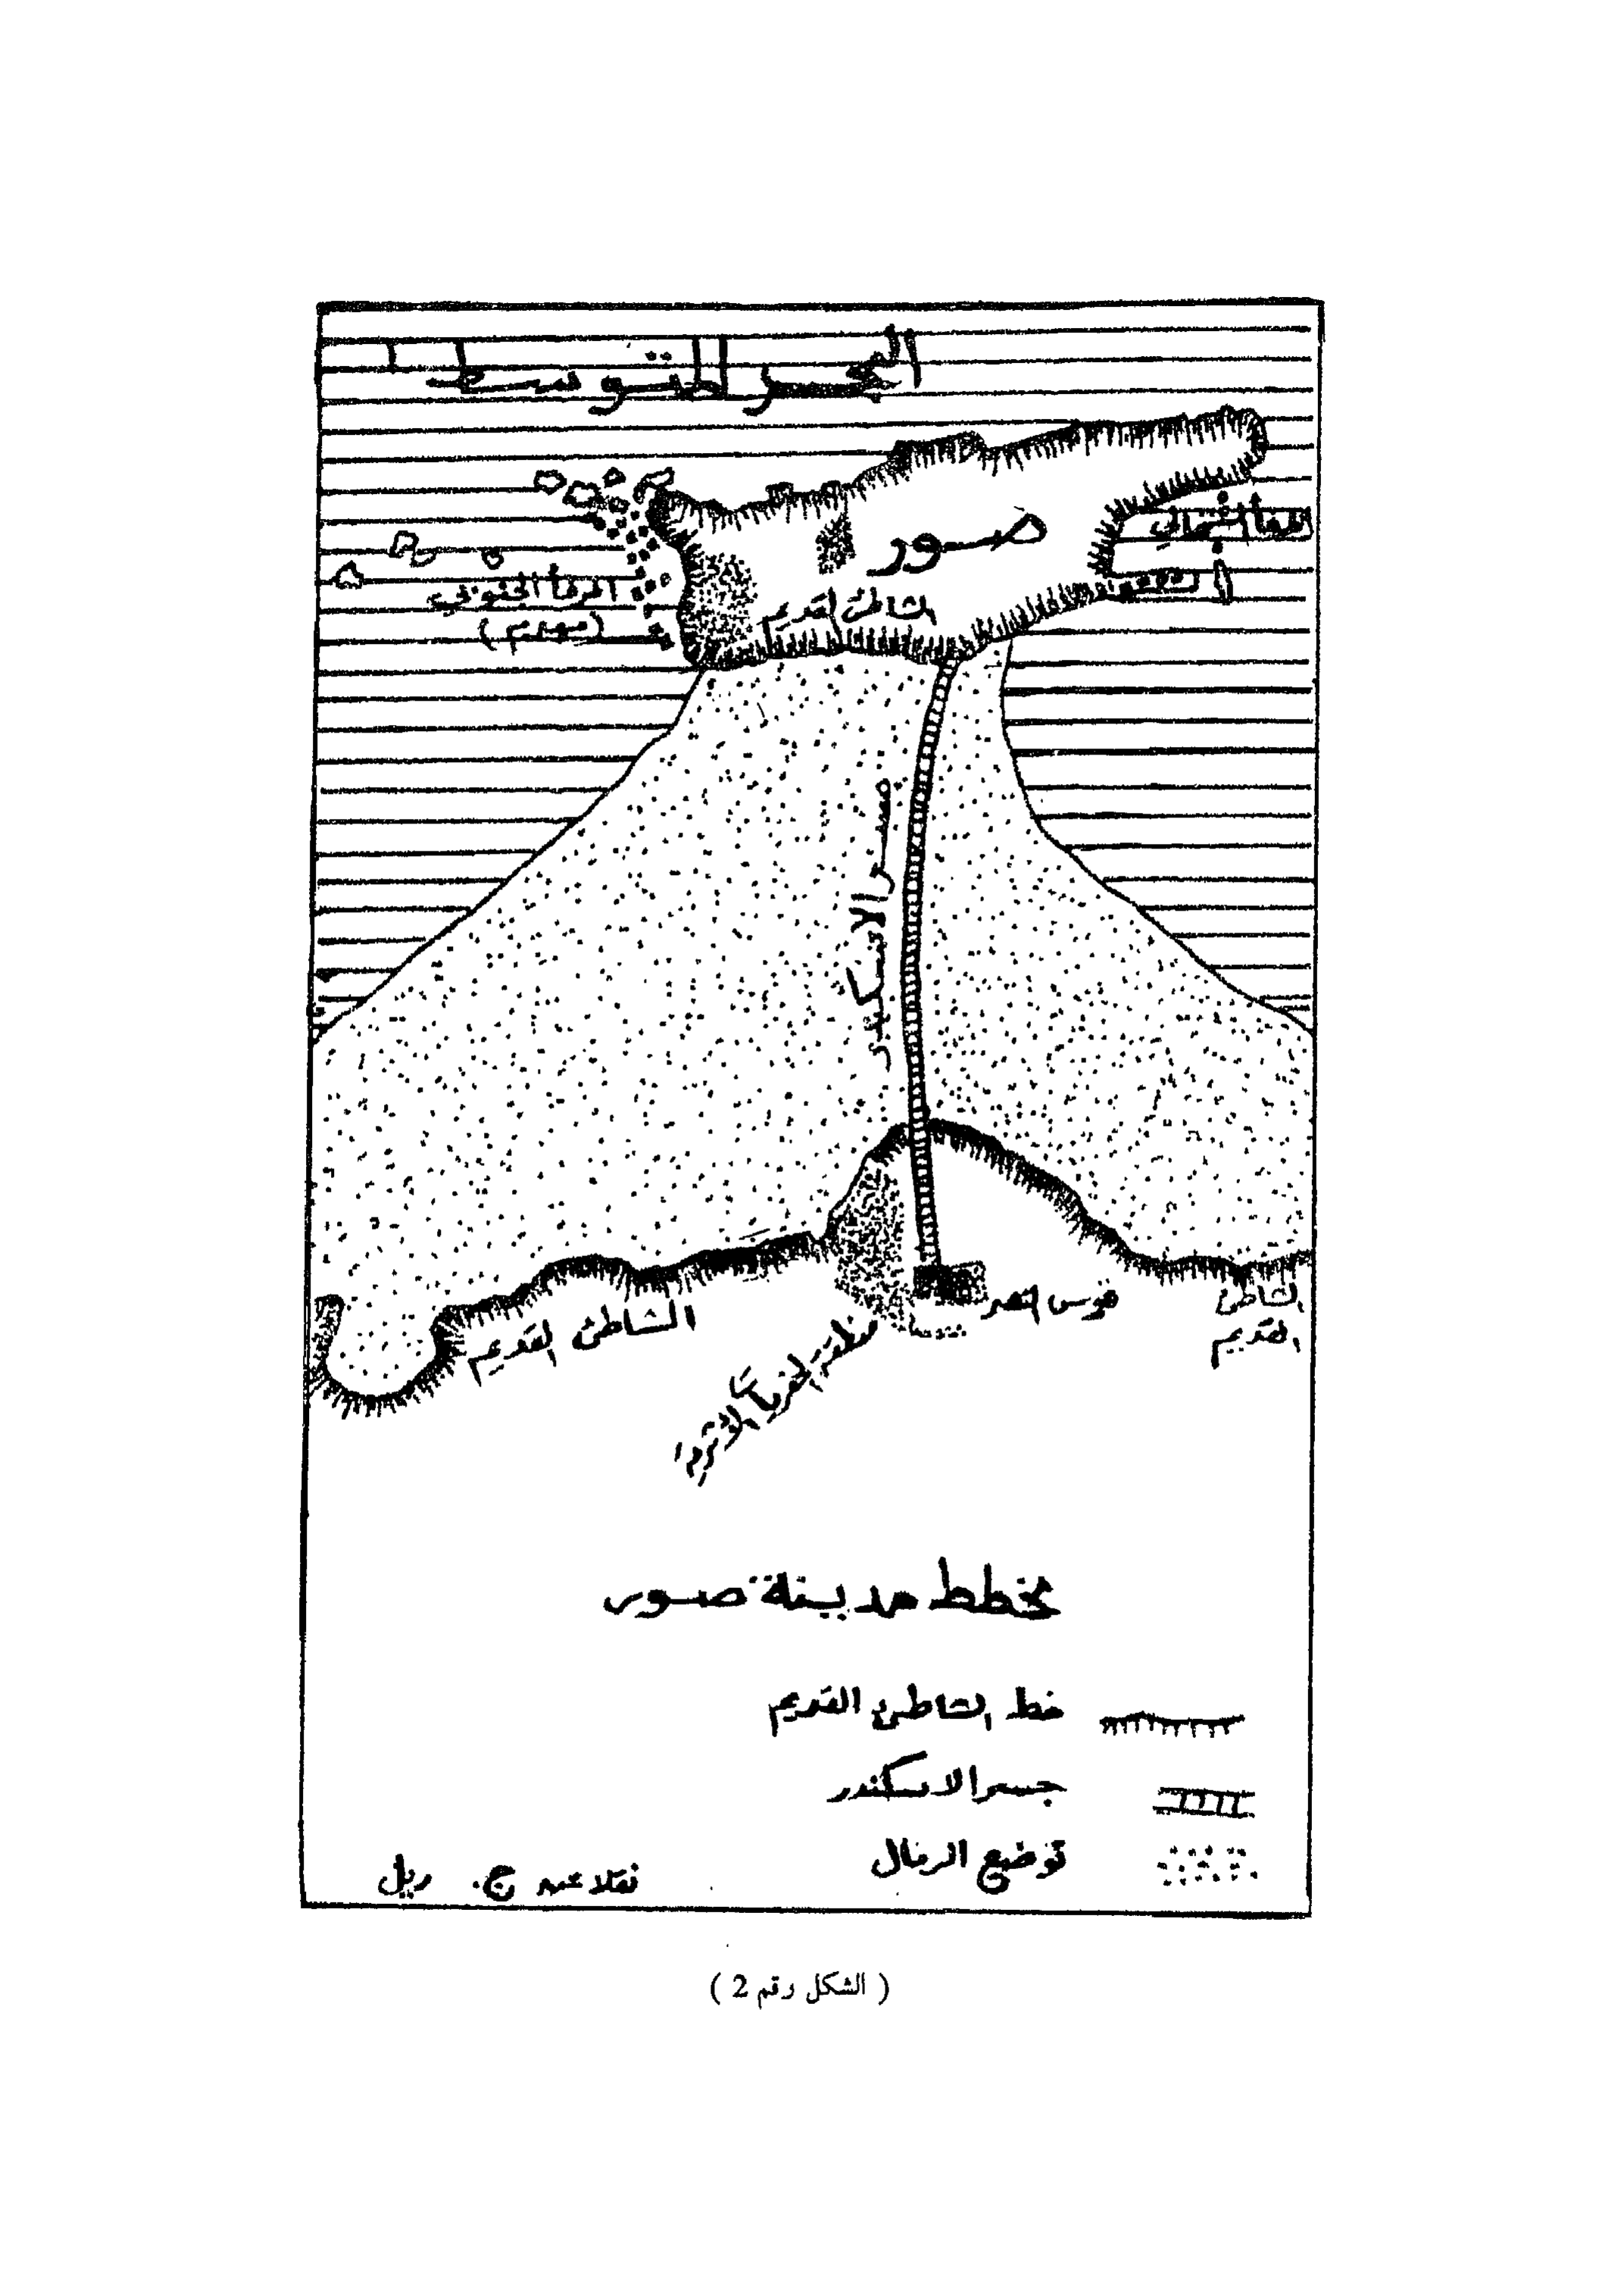 البحر المتوسط
المرفأ الشمالي
صور
المرفأ الجنوبي
(مهدم)
الشاطئ القديم
جسر الاسكندر
الشاطئ القديم
قوس النصر
الشاطئ
القديم
منطقة الحفريات الأثرية
مخطط مدينة صور
خط الشاطئ القديم
جسر الاسكندر
توضع الرمال
نقلا عن ج. ريل
( الشكل رقم 2 )